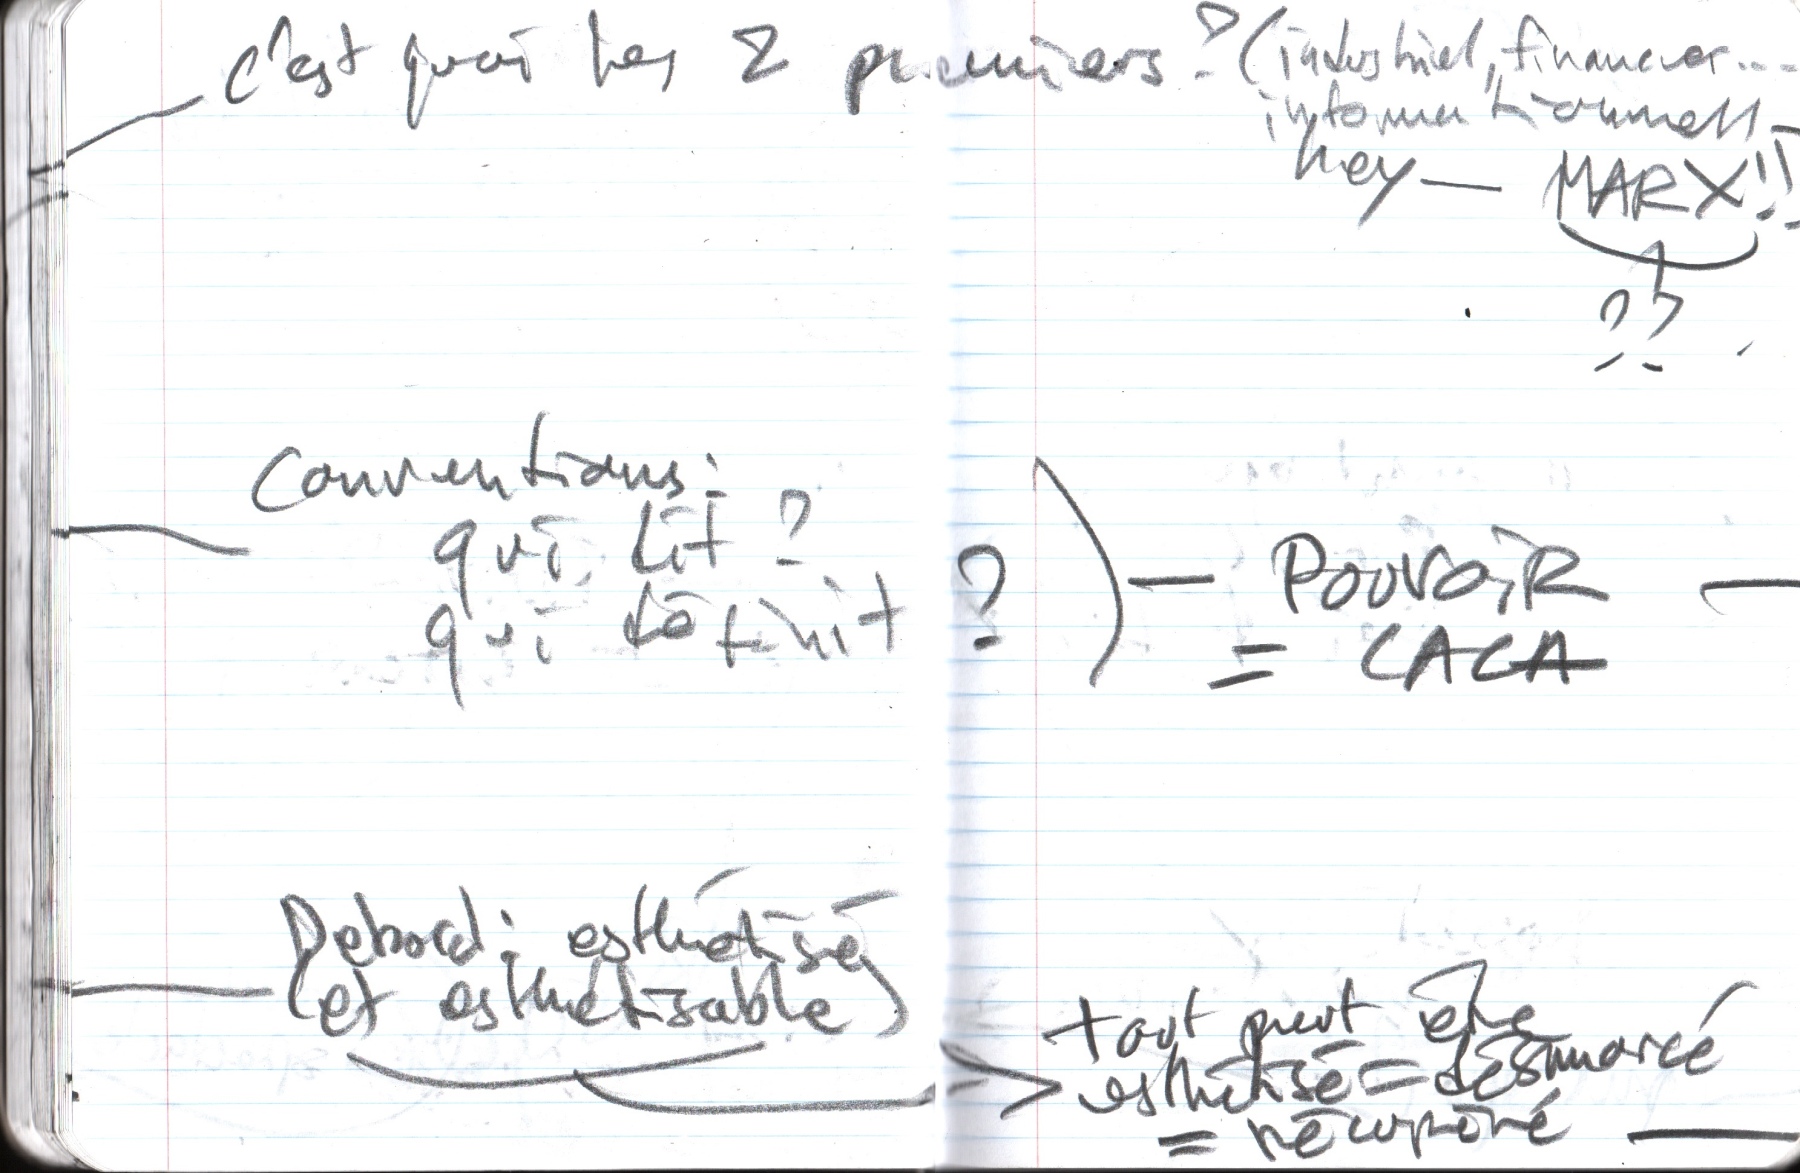 c'est quoi les 2 premiers? (industriel, financier...
informationnel)
hey — MARX!!
??
Conventions:
qui lit?
qui définit ?
) — POUVOIR —
= CACA
Debord: esthétisé
(et esthétisable)
tout peut être
esthétisé = désamorcé
= récupéré —